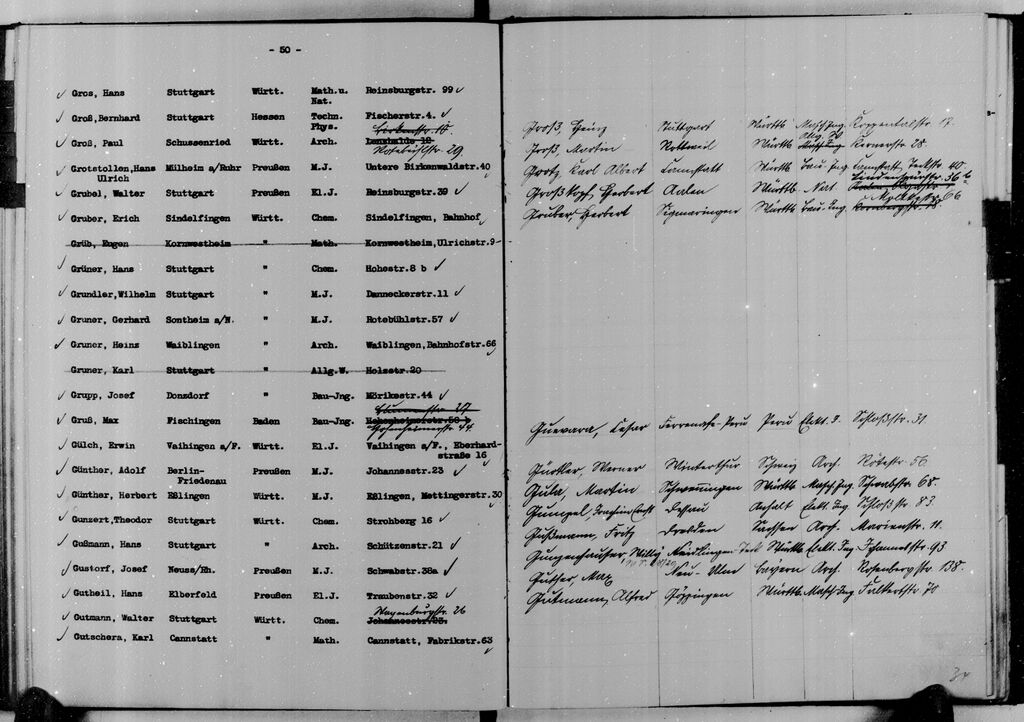 - 50 -
Gros, Hans Stuttgart Württ. Math.u. Reinsburgstr. 99
Nat.
Groß,Bernhard Stuttgart Hessen Techn. Fischerstr.4.
Phys.
Groß, Paul Schussenried Württ. Arch. Lenzhalde 18
Rotebühlstr. 29
Grotstollen,Hans Mülheim a/Ruhr Preußen M.J. Untere Birkenwaldstr.40
Ulrich
Grubel, Walter Stuttgart Preußen El.J. Reinsburgstr.39
Gruber, Erich Sindelfingen Württ. Chem. Sindelfingen, Bahnhof
Grüb, Eugen Kornwestheim " Math. Kornwestheim,Ulrichstr.9
Grüner, Hans Stuttgart " Chem. Hohestr.8 b
Grundler,Wilhelm Stuttgart " M.J. Danneckerstr.11
Gruner, Gerhard Sontheim a/N. " M.J. Rotebühlstr.57
Gruner, Heinz Waiblingen " Arch. Waiblingen,Bahnhofstr.66
Gruner, Karl Stuttgart " Allg.W. Holzstr.20
Grupp, Josef Donzdorf " Bau-Jng. Mörikestr.44
Blumenstr. 27
Gruß, Max Fischingen Baden Bau-Jng.
Hohenheimerstr. 44
Gülch, Erwin Vaihingen a/F. Württ. El.J. Vaihingen a/F., Eberhard-
straße 16
Günther, Adolf Berlin- Preußen M.J. Johannesstr.23
Friedenau
Günther, Herbert Eßlingen Württ. M.J. Eßlingen, Mettingerstr.30
Gunzert,Theodor Stuttgart Württ. Chem. Strohberg 16
Gußmann, Hans Stuttgart " Arch. Schützenstr.21
Gustorf, Josef Neuss/Rh. Preußen M.J. Schwabstr.38a
Gutheil, Hans Elberfeld Preußen El.J. Traubenstr.32
Wagenburgstr. 26
Gutmann, Walter Stuttgart Württ. Chem. Johannesstr.93.
Gutschera, Karl Cannstatt " Math. Cannstatt, Fabrikstr.63
Groß, Heinz Stuttgart Württb. Masch.Ing. Koppentalstr. 17.
Groß, Martin Rottweil Württb. Kernerstr. 28.
Karl Albert Cannstatt Württb. Bau.Ing. Cannstatt, Teckstr. 40
Großkopf, Herbert Aalen Württb. Nat.
Moltkestr. 66
Gruber, Herbert Sigmaringen Württb. Bau.Ing.
Guevara, Cesar Ferrenafe-Peru Peru Elekt. I. Schloßstr. 31.
Gürtler, Werner Winterthur Schweiz Arch. Rötestr. 56.
Gula, Martin Schwenningen Württb. Masch.Ing. Schwabstr. 68.
Gumpel, Dessau Anhalt Elekt. Ing. Schloßstr. 83.
Gußmann, Fritz Dresden Sachsen Arch. Marienstr. 11.
Gunzenhäuser Willy Neidlingen-Teck Württb. Elekt. Ing. Johannesstr. 93
Guther, Max Neu-Ulm Bayern Arch. Rosenbergstr. 138.
Gutmann, Alfred Göppingen Württb. Masch.Ing. Falkertstr. 70